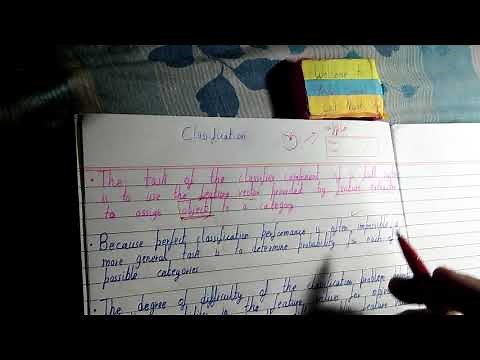 Welcome to
Classification
• The task of the classifier component of a full system
is to use the feature vector provided by feature extractor
to assign object to a category
• Because perfect classification performance is often impossible, a
more general task is to determine probability for each of
possible categories
• The degree of difficulty of the classification problem
the feature value for